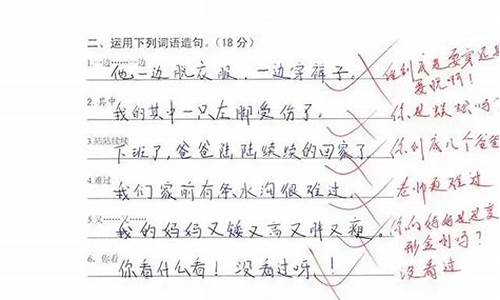 二、运用下列词语造句。(18 分)
1.一边……一边
他一边脱衣服，一边穿裤子。
他到底是要穿还是要脱啊！
2. 其中
我的其中一只左脚受伤了。
你是蜈蚣吗？
3.陆陆续续
下班了，爸爸陆陆续续的回家了。
你到底几个爸爸
4.难过
我们家前有条水沟很难过。
老师更难过
5.又……又……
我的妈妈又矮又高又胖又瘦。
你的妈妈是变形金刚吗？
6、你看
你看什么看！没看过呀！！
没看过